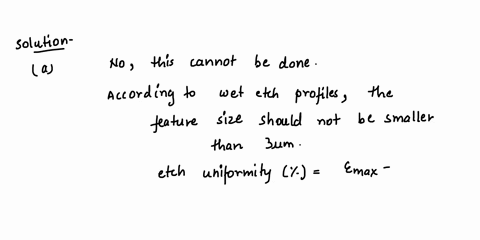 Solution-
(a) No, this cannot be done.
According to wet etch profiles, the
feature size should not be smaller
than 3um.
etch uniformity (%) = Emax -